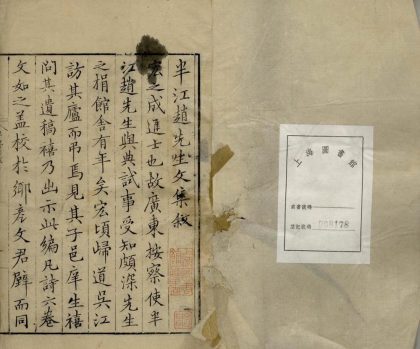 半江趙先生文集叙
宏之成進士也故廣東按察使半
江趙先生與典試事受知頗深先生
之捐館舍有年矣宏頃歸道吳江
訪其廬而弔焉見其子邑庠生禧
問其遺稿禧乃出示此編凡詩六卷
文如之蓋校於鄉彥文君壁而同
上海圖書館